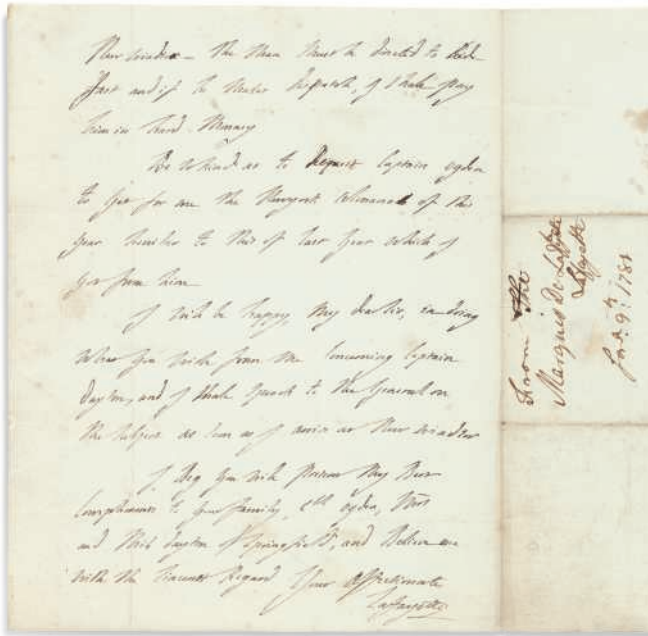 New windsor – The Man Must be directed to Ride
fast and if he Makes dispatch, I shall pay
him in hard Money
Be so kind as to Request Captain ogden
to Get for me the Newyork Almanack of this
Year Similar to this of last Year Which I
got from him
I will be happy, My dear Sir, in doing
What You Wish from Me Concerning Captain
dayton, and I shall speack to the General on
the Subject as soon as I arrive at New windsor
I Beg You will present My Best
Compliments to Your family, Cll ogden, Mrs
and Miss dayton of Springfield, and Believe me
With the sincerest Regard Your Affectionate
Lafayette
From the
Marquis De La Fayette
La Fayette
Jan. 9th 1781